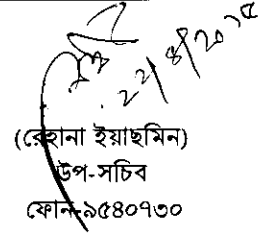 ২২/৪/২০১৫
(রেহানা ইয়াছমিন)
উপ-সচিব
ফোন-৯৫৪০৭৩০